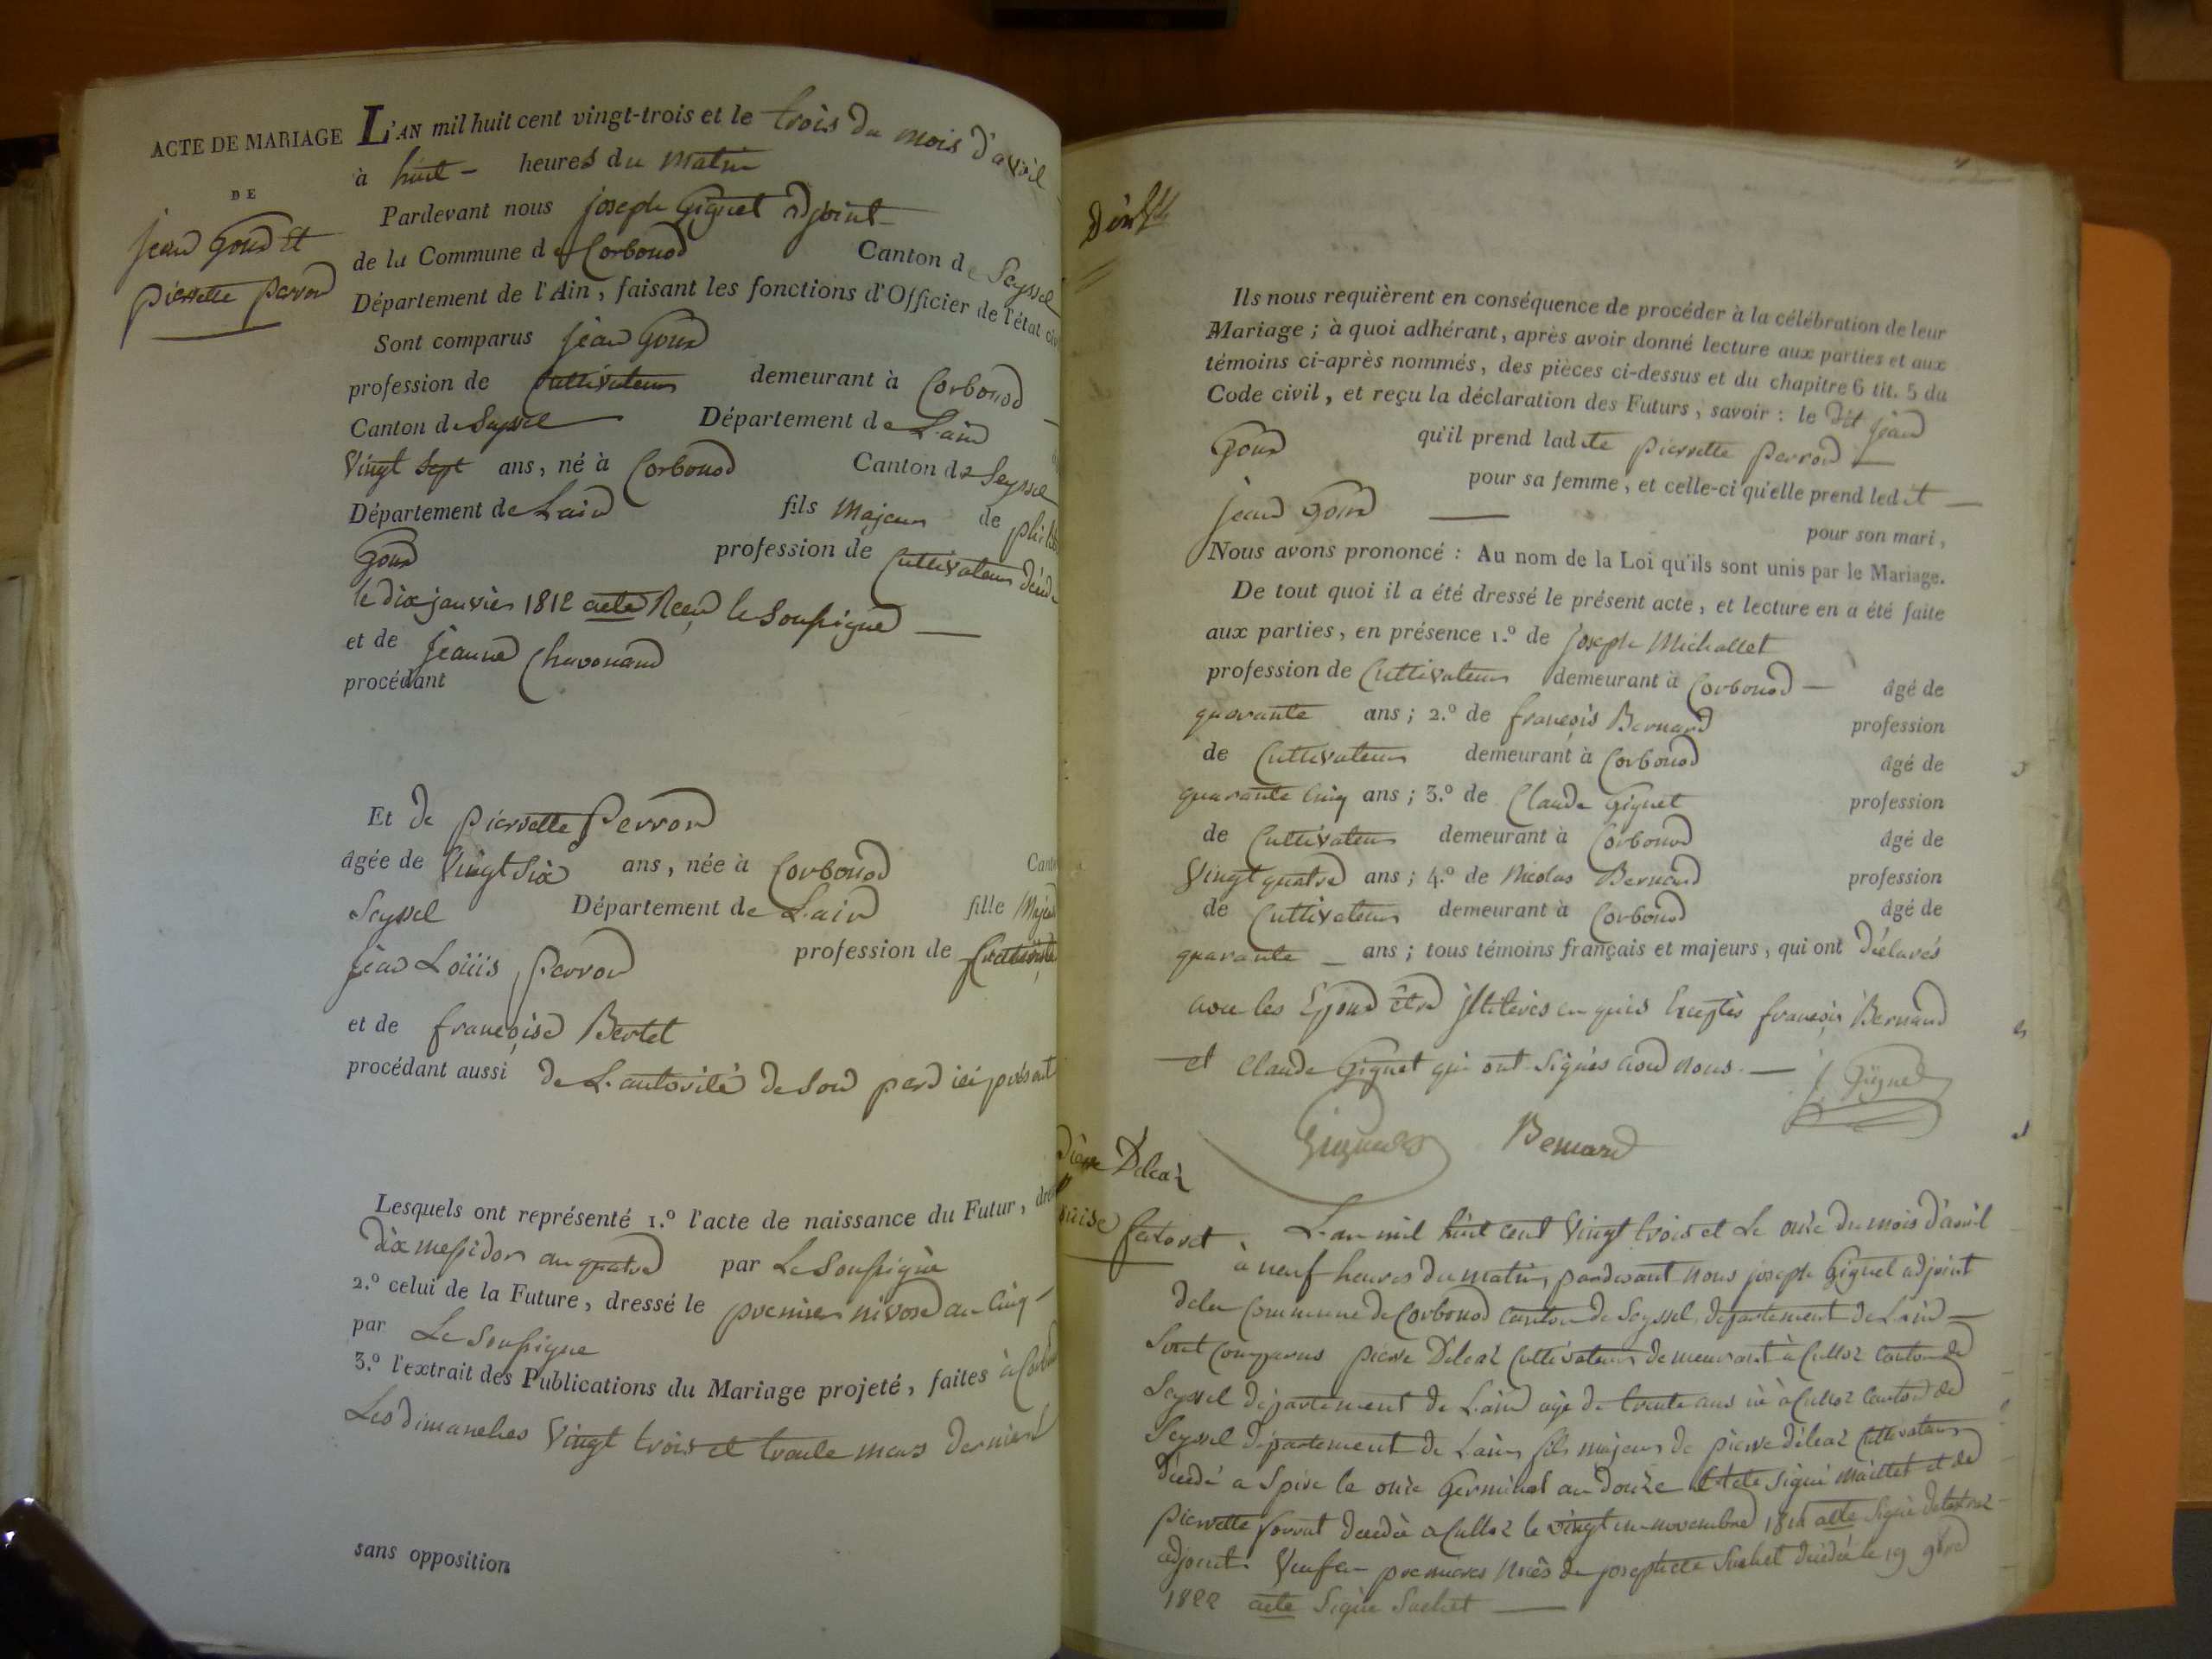 ACTE DE MARIAGE
DE
jean Goud Et
pierrette perron
L'AN mil huit cent vingt-trois et le trois du mois d'avril
à huit - heures du matin
Pardevant nous joseph Gignet adjoint
de la Commune de Corbonod Canton de Seyssel
Département de l'Ain, faisant les fonctions d'Officier de l'état civ
Sont comparus jean Goud
profession de Cultivateur demeurant à Corbonod
Canton de Seyssel Département de L'ain
Vingt Sept ans, né à Corbonod Canton de Seyssel
Département de Lain fils Majeur de
Goud profession de Cultivateur
le dix janvier 1812 acte Reçu le Soussigné
et de jeanne
procédant
Et de pierrette Perron
âgée de Vingt Six ans, née à Corbonod Cant
Seyssel Département de L'ain fille
jean Loüis perron profession de
et de françoise Bertet
procédant aussi de L'autorité de Son pere ici présent
Lesquels ont représenté 1.º l'acte de naissance du Futur,
dix messidor an quatre par Le Soussigné
2.º celui de la Future, dressé le premier nivose an Cinq
par Le Soussigné
3.º l'extrait des Publications du Mariage projeté, faites à
Les dimanches Vingt trois et trente mars dernier
sans opposition
Ils nous requièrent en conséquence de procéder à la célébration de leur
Mariage; à quoi adhérant, après avoir donné lecture aux parties et aux
témoins ci-après nommés, des pièces ci-dessus et du chapitre 6 tit. 5 du
Code civil, et reçu la déclaration des Futurs, savoir: le dit jean
Goud qu'il prend ladite pierrette perron
pour sa femme, et celle-ci qu'elle prend ledit
jean Goud pour son mari,
Nous avons prononcé: Au nom de la Loi qu'ils sont unis par le Mariage.
De tout quoi il a été dressé le présent acte, et lecture en a été faite
aux parties, en présence 1.º de joseph Michallet
profession de Cultivateur demeurant à Corbonod âgé de
quarante ans; 2.º de françois Bernard profession
de Cultivateur demeurant à Corbonod âgé de
quarante Cinq ans; 3.º de Claude Gignet profession
de Cultivateur demeurant à Corbonod âgé de
Vingt quatre ans; 4.º de Nicolas Bernard profession
de Cultivateur demeurant à Corbonod âgé de
quarante ans; tous témoins français et majeurs, qui ont déclarés
avec les Epoux être Excepté françois Bernard
et Claude Gignet qui ont Signés avec nous.
J Gignet
Gignet Bernard
L'an mil huit cent Vingt trois et Le onze du mois d'avril
à neuf heures du matin, pardevant nous joseph Gignet adjoint
dela Commune de Corbonod Canton de Seyssel, departement de Lain
Sont Comparus pierre Deleaz Cultivateur demeurant à Culloz Canton de
Seyssel departement de L'ain agé de trente ans né à Culloz Canton de
Seyssel departement de Lain fils majeur de pierre deleaz Cultivateur
décédé a Spire le onze Germinal an douze acte signé maillet et de
pierrette décédée a Culloz le vingt un novembre acte Signé
adjoint Veuf en premieres noces de josephette Suchet décédée le 19 9bre
1822 acte Signé Suchet